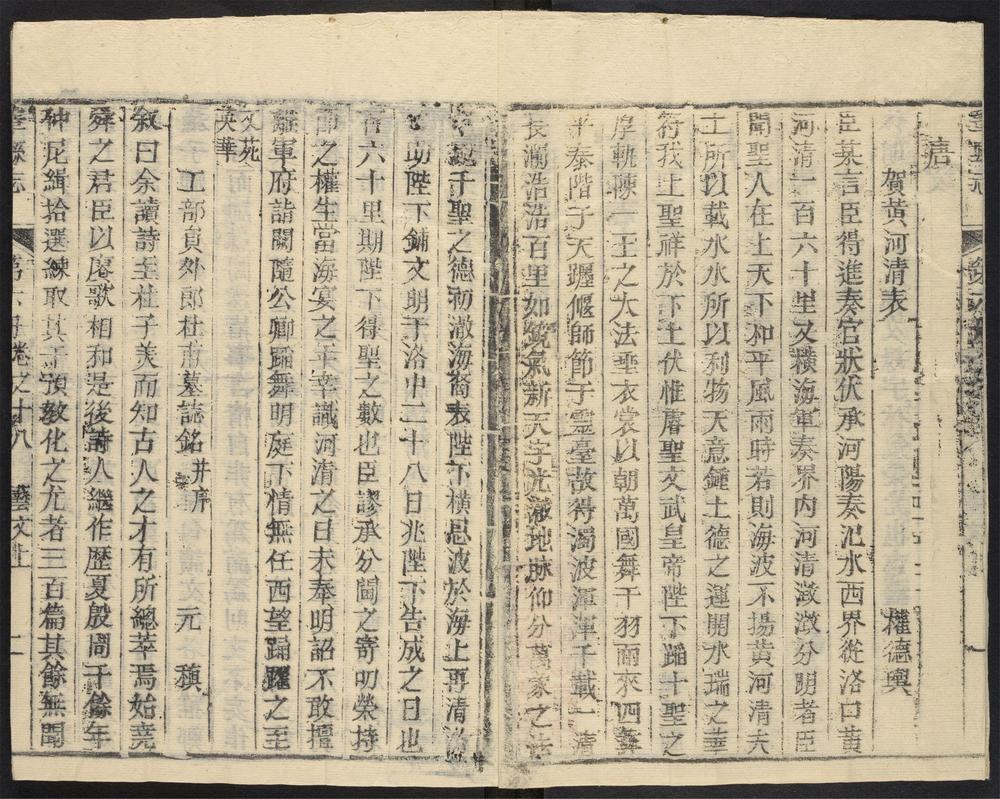 唐
賀黃河清表
權德輿
臣某言臣得進奏官狀伏承河陽奏氾水西界從洛口黃
河清一百六十里又橫海軍奏界內河清澈澂分明者臣
聞聖人在上天下和平風雨時若則海波不揚黃河清夫
土所以載水水所以利物天意鍾土德之運開水瑞之華
符我上聖祥於下土伏惟睿聖文武皇帝陛下踊十聖之
厚軌陳二王之大法垂衣裳以朝萬國舞干羽而來四彝
平秦階于天躔偃師節于靈臺故得濁波渾渾千載一清
長瀾浩浩百里如鏡氣新天字光澈地脉仰分萬家之
于聖之德初澈海裔表陛下橫恩波於海上再清
助陛下鋪文明于洛中二十八日兆陛下告成之日也
百六十里期陛下得聖之數也臣謬承分閫之寄叨榮持
節之權生當海宴之年幸識河清之日未奉明詔不敢擅
離軍府詣闕隨公卿踊舞明庭下情無任西望踊躍之至
文苑
英華
工部員外郎杜甫墓誌銘并序
元稹
叙曰余讀詩至杜子美而知古人之才有所總萃焉始堯
舜之君臣以賡歌相和是後詩人繼作歷夏殷周千餘年
仲尼緝拾選練取其于預教化之尤者三百篇其餘無聞
卷之十八
藝文上
二